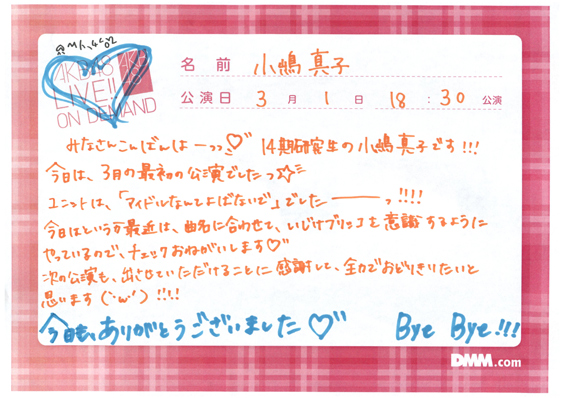 AKB48
LIVE!!
ON DEMAND
名 前 小嶋真子
公演日 3 月 1 日 18 : 30 公演
みなさんこんばんはーっっ♡" 14期研究生の小嶋真子です!!!
今日は、3月の最初の公演でしたっ☆
ユニットは、「アイドルなんて呼ばないで」でしたーーーっ!!!!
今日はというか最近は、曲名に合わせて、いじけブリッコを意識するように
やっているので、チェックおねがいします♡"
次の公演も、出させていただけることに感謝して、全力でおどりきりたいと
思います(`・ω・´)!!!!
今日も、ありがとうございました♡" Bye Bye!!!
DMM.com